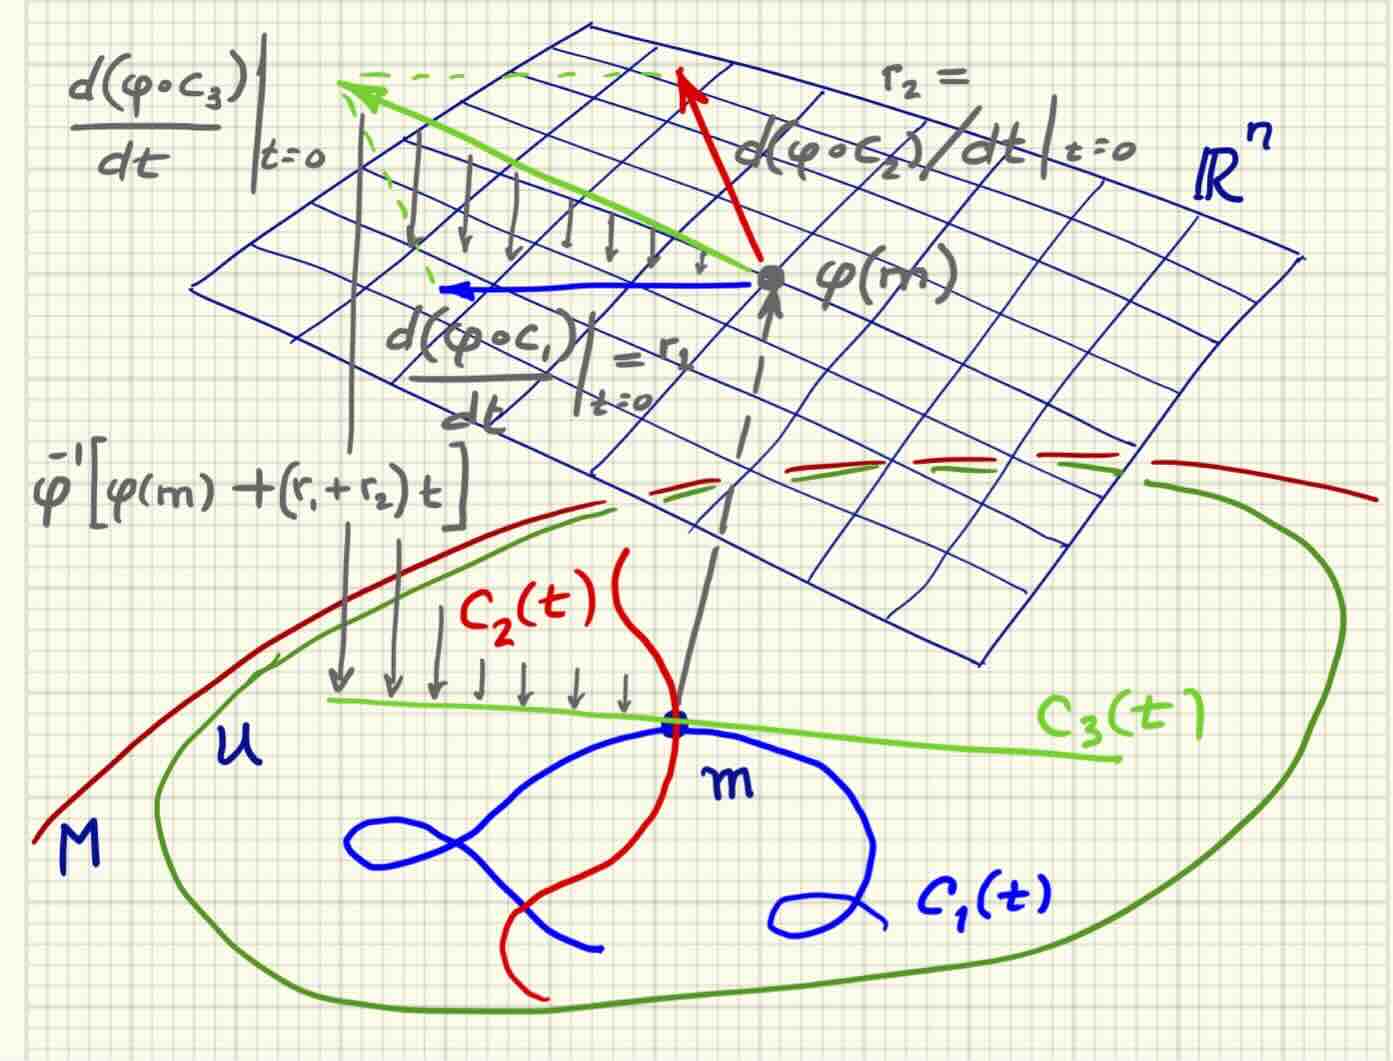 d(φ∘C₃)/dt |t=0
r₂ =
d(φ∘C₂)/dt |t=0
ℝⁿ
φ(m)
d(φ∘C₁)/dt |t=0 = r₁
φ⁻¹[φ(m) + (r₁+r₂)t]
C₂(t)
C₃(t)
U
m
M
C₁(t)